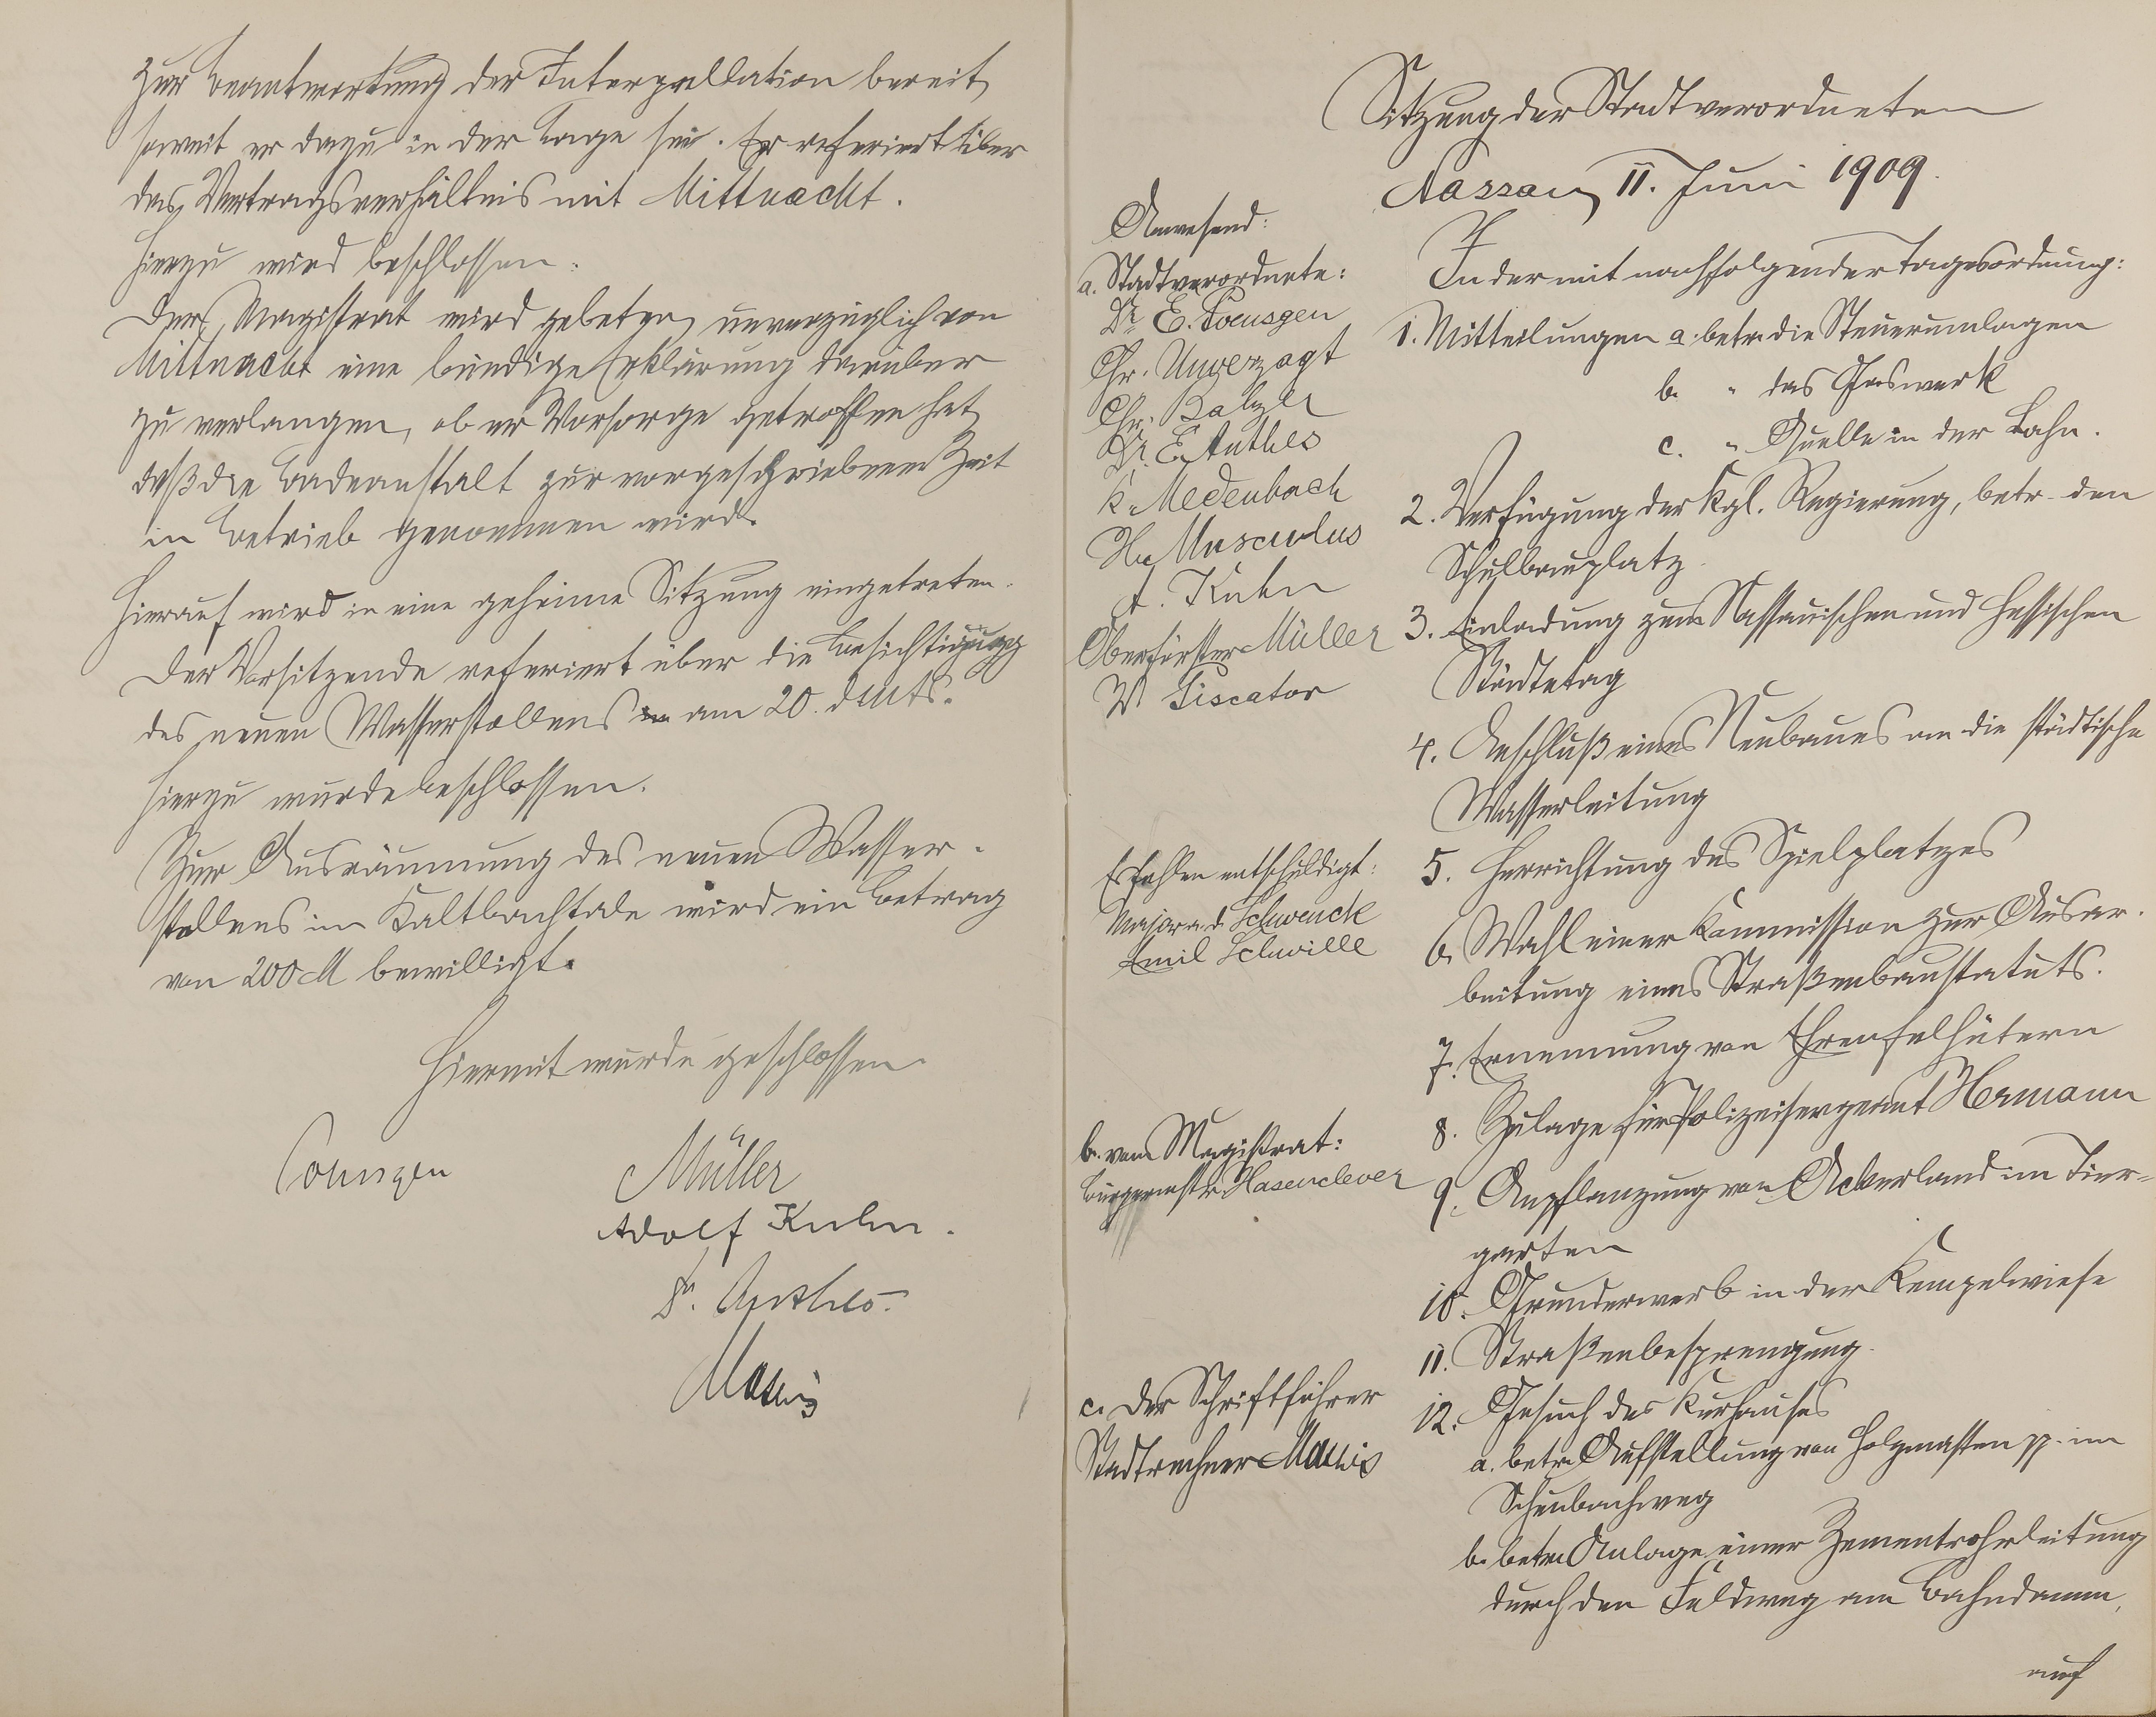 zur Beantwortung der Interpellation bereit,
soweit er dazu in der Lage sei. Er referiert über
das Vertragsverhältnis mit Mittnacht.
Hierzu wird beschlossen:
Der Magistrat wird gebeten, unverzüglich von
Mittnacht eine bündige Erklärung darüber
zu verlangen, ob er Vorsorge getroffen hat,
daß die Badeanstalt zur vorgeschriebenen Zeit
in Betrieb genommen wird.
Hierauf wird in eine geheime Sitzung eingetreten.
Der Vorsitzende referiert über die Besichtigung
des neuen Wasserstollens am 20. d Mts.
Hierzu wurde beschlossen.
Zur Ausräumung des neuen Wasser-
stollens im Kaltbachtale wird ein Betrag
von 200 M bewilligt.
Hiermit wurde geschlossen.
Müller
Adolf Kuhn.
Dr. Anthes.
Sitzung der Stadtverordneten
Nassau, 11. Juni 1909.
Anwesend:
a. Stadtverordnete:
Dr. E.
Chr. Unverzagt
Chr. Balzer
Dr. E. Anthes
K. Medenbach
H. Musculus
A. Kuhn
Oberförster Müller
W. Piscator
Es fehlen entschuldigt:
Major a. d. Schwenck
Emil Schwille
b. vom Magistrat:
Bürgermstr. Hasenclever
c. Der Schriftführer
Stadtrechner
In der mit nachfolgender Tagesordnung:
1. Mitteilungen a. betr. die Steuerumlagen
b. " das Gaswerk
c. " Quelle in der Lahn.
2. Verfügung der Kgl. Regierung, betr. den
Schulbauplatz
3. Einladung zum Nassauischen und Hessischen
Städtetag
4. Anschluß eines Neubaues an die städtische
Wasserleitung
5. Herrichtung des Spielplatzes
6. Wahl einer Kommission zur Ausar-
beitung eines Straßenbaustatuts.
7. Ernennung von Ehrenfelhütern
8. Zulage für Polizeisergeant Hermann
9. Anpflanzung von Ackerland im Tier-
garten
10. Grunderwerb in der Kempelwiese
11. Straßenbesprengung
12. Gesuch des Kurhauses
a. betr. Aufstellung von Holzmasten pp. im
Scheubachweg
b. betr. Anlage einer Zementrohrleitung
durch den Feldweg am Bahndamm,
auf